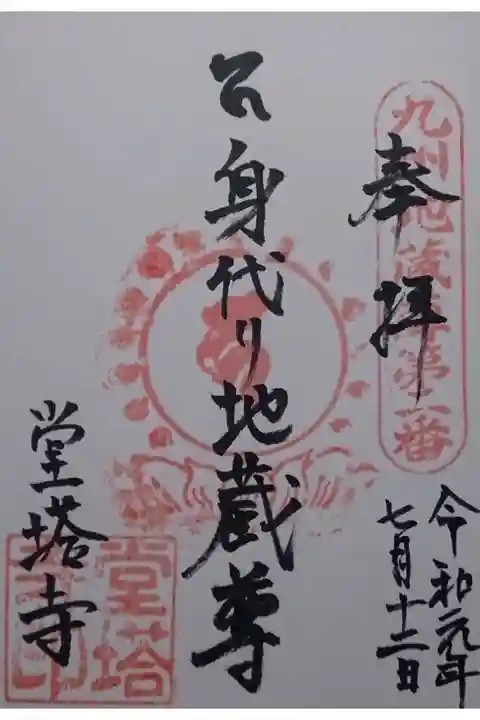 奉拝
九州地蔵尊第二番
令和元年
七月十二日
身代り地蔵尊
堂塔寺
堂塔